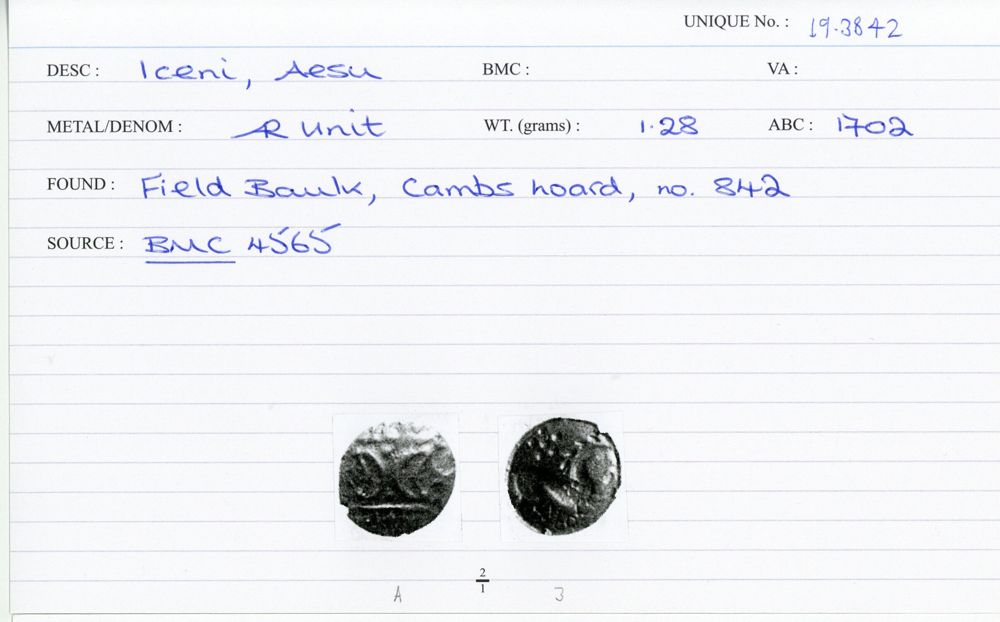 UNIQUE No. : 19.3842
DESC : Iceni, Aesu BMC : VA :
METAL/DENOM : AR Unit WT. (grams) : 1.28 ABC : 1702
FOUND : Field Baulk, Cambs hoard, no. 842
SOURCE : BMC 4565
2
1
A 3